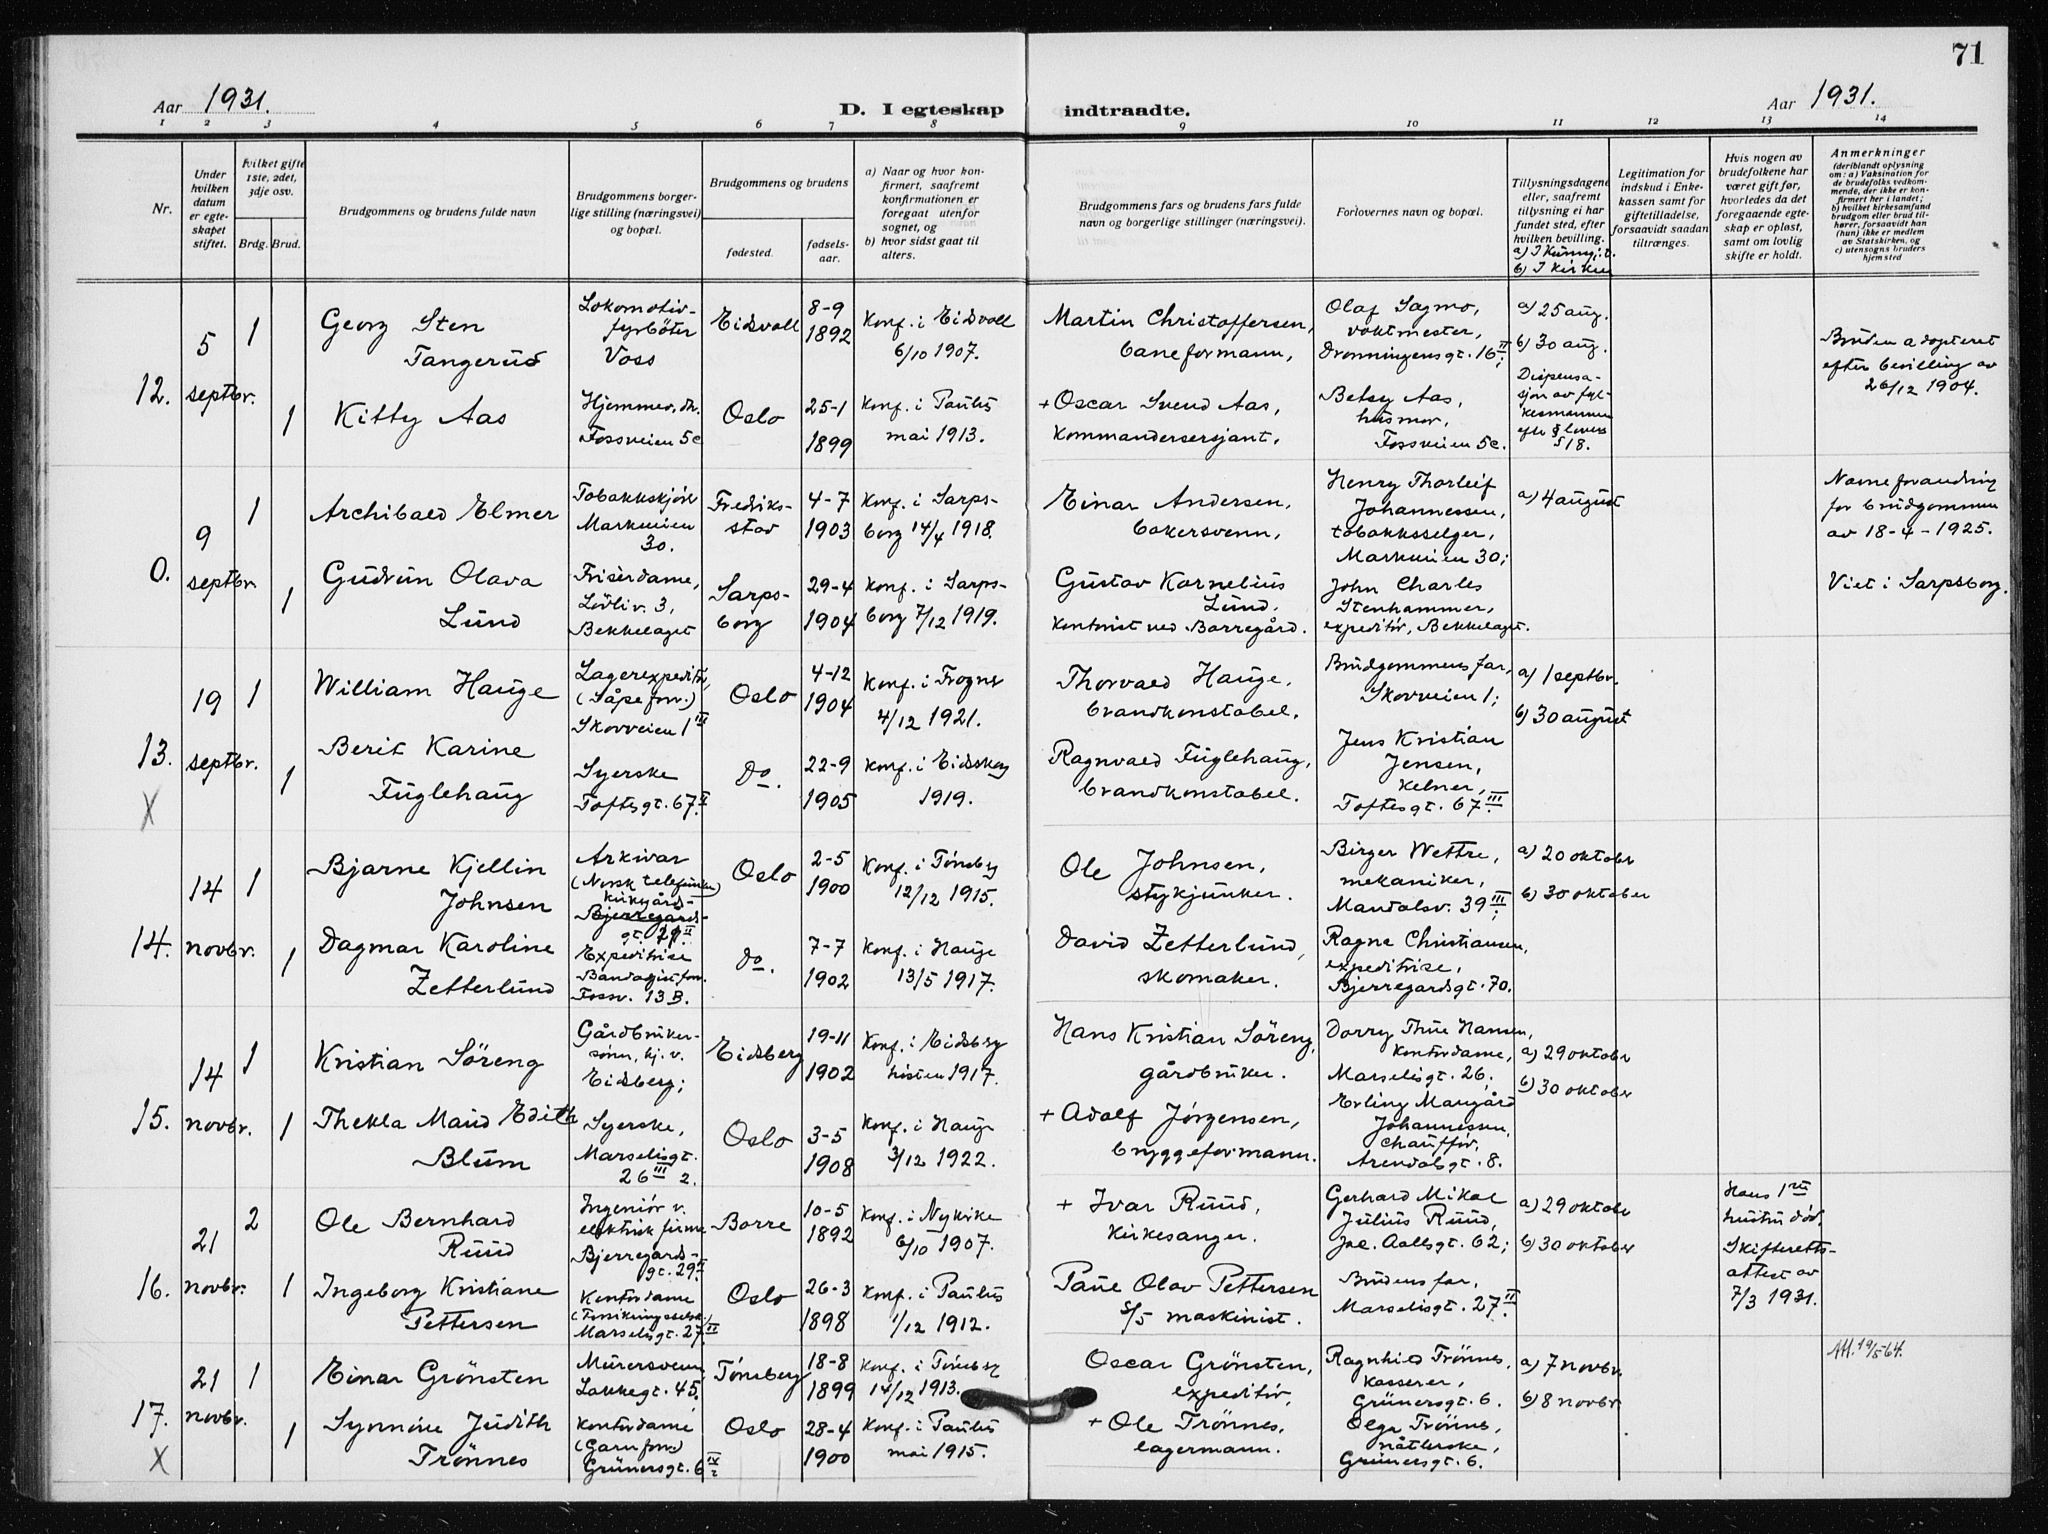 71
Aar 1931.
D. I egteskap indtraadte.
Aar 1931.
1 2 3 4 5 6 7 8 9 10 11 12 13 14
Nr.
Under hvilken datum er egteskapet stiftet.
hvilket gifte 1ste, 2det, 3dje osv.
Brdg. Brud.
Brudgommens og brudens fulde navn
Brudgommens borgerlige stilling (næringsvei) og bopæl.
Brudgommens og brudens
fødested.
fødselsaar.
a) Naar og hvor konfirmert, saafremt konfirmationen er foregaat utenfor sognet, og
b) hvor sidst gaat til alters.
Brudgommens fars og brudens fars fulde navn og borgerlige stillinger (næringsvei).
Forlovernes navn og bopæl.
Tillysningsdagene eller, saafremt tillysning ei har fundet sted, efter hvilken bevilling.
b) I kirken
Legitimation for indskud i Enkekassen samt for giftetilladelse, forsaavidt saadan tiltrænges.
Hvis nogen av brudefolkene har været gift før, hvorledes da det foregaaende egteskap er opløst, samt om lovlig skifte er holdt.
Anmerkninger
(deriblandt oplysning om: a) Vaksination for de brudefolks vedkommende, der ikke er konfirmert her i landet;
b) hvilket kirkesamfund brudgom eller brud tilhører, forsaavidt han (hun) ikke er medlem av Statskirken, og
c) utensogns bruders hjemsted
12.
5 septbr.
1
Georg Sten
Tangerud
Lokomotiv-
fyrbøter
Voss
Eidsvoll
8-9
1892
Konf. i Eidsvoll
6/10 1907.
Martin Christoffersen,
baneformann,
Olaf Sagmo,
voktmester,
Dronningensgt. 16 II;
a) 25 aug.
b) 30 aug.
Bruden adopteret
efter bevilling av
26/12 1904.
1
Kitty Aas
Hjemmev. dtr.
Fossveien 5c
Oslo
25-1
1899
Konf. i Paulus
mai 1913.
+ Oscar Svend Aas,
kommandersersjant,
Betsy Aas,
husmor,
Fossveien 5c.
Dispensa-
sjon av fyl-
kesmannen
efter § lovens
§ 18.
0.
9 septbr.
1
Archibald Elmer
Tobakkskjør
Markveien
30.
Fredriks-
stad
4-7
1903
Konf. i Sarps-
borg 14/4 1918.
Einar Andersen,
bakersvenn,
Henry Thorleif
Johannessen,
tobakksselger,
Markveien 30;
a) 4 august
Navneforandring
for brudgommen
av 18-4-1925.
1
Gudrun Olava
Lund
Friserdame,
Lovliv. 3,
Bekkelaget
Sarps-
borg
29-4
1904
Konf. i Sarps-
borg 7/12 1919.
Gustav Kornelius
Lund.
kontorist ved Borregård.
John Charles
Stenhammer,
expeditør, Bekkelaget.
Viet i Sarpsborg.
13.
X
19 septbr.
1
William Hauge
Lagerexpeditør,
(Såpeforr.)
Skovveien 1 III
Oslo
4-12
1904
Konf. i Frogner
4/12 1921.
Thorvald Hauge,
brandkonstabel.
Brudgommens far,
Skovveien 1;
a) 1 septbr.
b) 30 august
1
Berit Karine
Fuglehaug
Syerske
Toftesgt. 67 II
Do.
22-9
1905
Konf. i Eidskog
1919.
Ragnvald Fuglehaug,
brandkonstabel.
Jens Kristian
Jensen,
Kelner,
Toftesgt. 67 III.
14.
14 novbr.
1
Bjarne Kjellin
Johnsen
Arkivar
(Norsk telefunken)
kirkgård-
Bjerregårds-
gt. 29 II
Oslo
2-5
1900
Konf. i Tønsberg
12/12 1915.
Ole Johnsen,
stykjunker.
Birger Wettre,
mekaniker,
Mandalsv. 39 III;
a) 20 oktober
b) 30 oktober
1
Dagmar Karoline
Zetterlund
Expeditrise
Bandagistforr.
Fossv. 13 B.
Do.
7-7
1902
Konf. i Hauge
13/5 1917.
David Zetterlund,
skomaker.
Ragna Christiansen,
expeditrise,
Bjerregårdsgt. 70.
15.
14 novbr.
1
Kristian Söreng
Gårdbruker-
sønn, hj. v.
Eidsberg;
Eidsberg
19-11
1902
Konf. i Eidsberg
høsten 1917.
Hans Kristian Söreng,
gårdbruker.
Dorry Thue Hansen,
kontordame,
Marselisgt. 26;
a) 29 oktober
b) 30 oktober
1
Thekla Maud Edith
Blum
Syerske,
Marselisgt.
26 III 2.
Oslo
3-5
1908
Konf. i Hauge
3/12 1922.
+ Adolf Jørgensen,
bryggeformann.
Erling Maugård
Johannessen,
Chauffør,
Arendalsgt. 8.
16.
21 novbr.
2
Ole Bernhard
Ruud
Ingeniør v.
elektrisk firma
Bjerregårds-
gt. 29 II
Borre
10-5
1892
Konf. i Nykirke
6/10 1907.
+ Ivar Ruud,
Kirkesanger.
Gerhard Mikal
Julius Ruud,
Jac. Aallsgt. 62;
a) 29 oktober
b) 30 oktober
Hans 1ste
hustru død.
Skifteretts-
attest av
7/3 1931.
1
Ingeborg Kristiane
Pettersen
Kontordame
(Forsikringsselsk.)
Marselisgt. 27 II
Oslo
26-3
1898
Konf. i Paulus
1/12 1912.
Paul Olav Pettersen
S/S maskinist.
Brudens far,
Marselisgt. 27 II.
17.
X
21 novbr.
1
Einar Grönsten
Murersvenn,
Lakkegt. 45.
Tønsberg
18-8
1899
Konf. i Tønsberg
14/12 1913.
Oscar Grönsten,
expeditör,
Ragnhild Trönnes,
kasserer,
Grünersgt. 6.
a) 7 novbr.
b) 8 novbr.
Att. 19/5 64.
1
Synnöve Judith
Trönnes
Kontordame
(Garnforr.)
Grünersgt. 6 IV
Oslo
28-4
1900
Konf. i Paulus
mai 1915.
+ Ole Trönnes,
lagermann.
Olga Trönnes,
nåtlerske,
Grünersgt. 6.